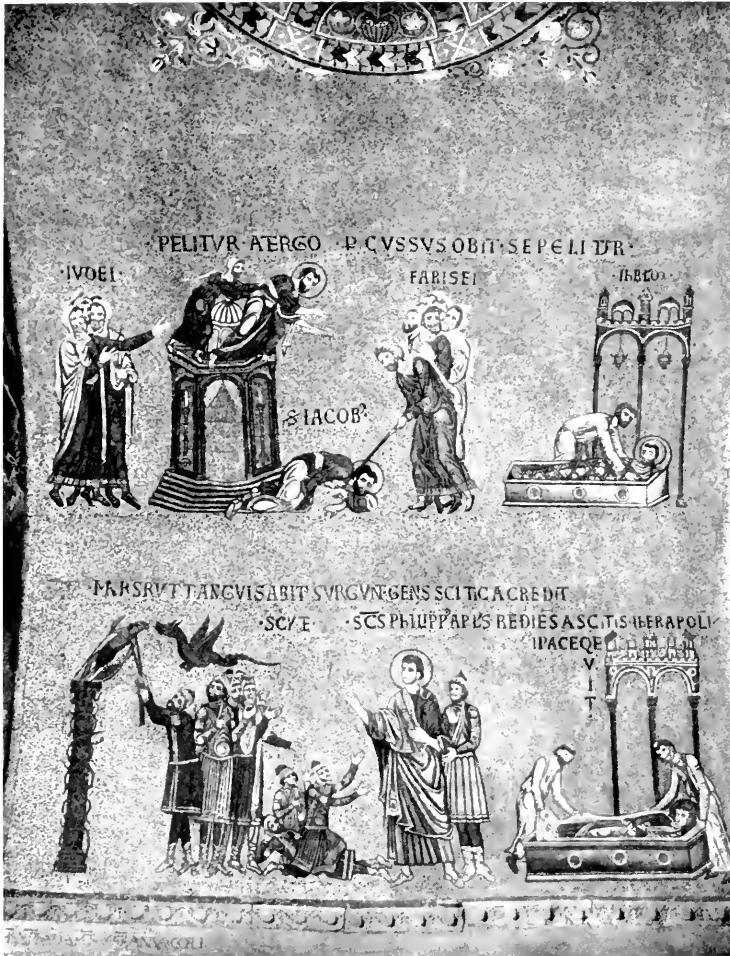 ·PELITVR·ATERGO·P̱CVSSVS OBIT·SEPELITVR·
·IVDEI
FARISEI
·S·IACOB
MARS RVIT ANGVIS ABIT SVRGVNT GENS SCITICA CREDIT
·SCITE·
·SC̄S PHILIPP' AP̄LS REDIĒS A SCITIS IHERAPOLI
IPACEQE
V
I
T